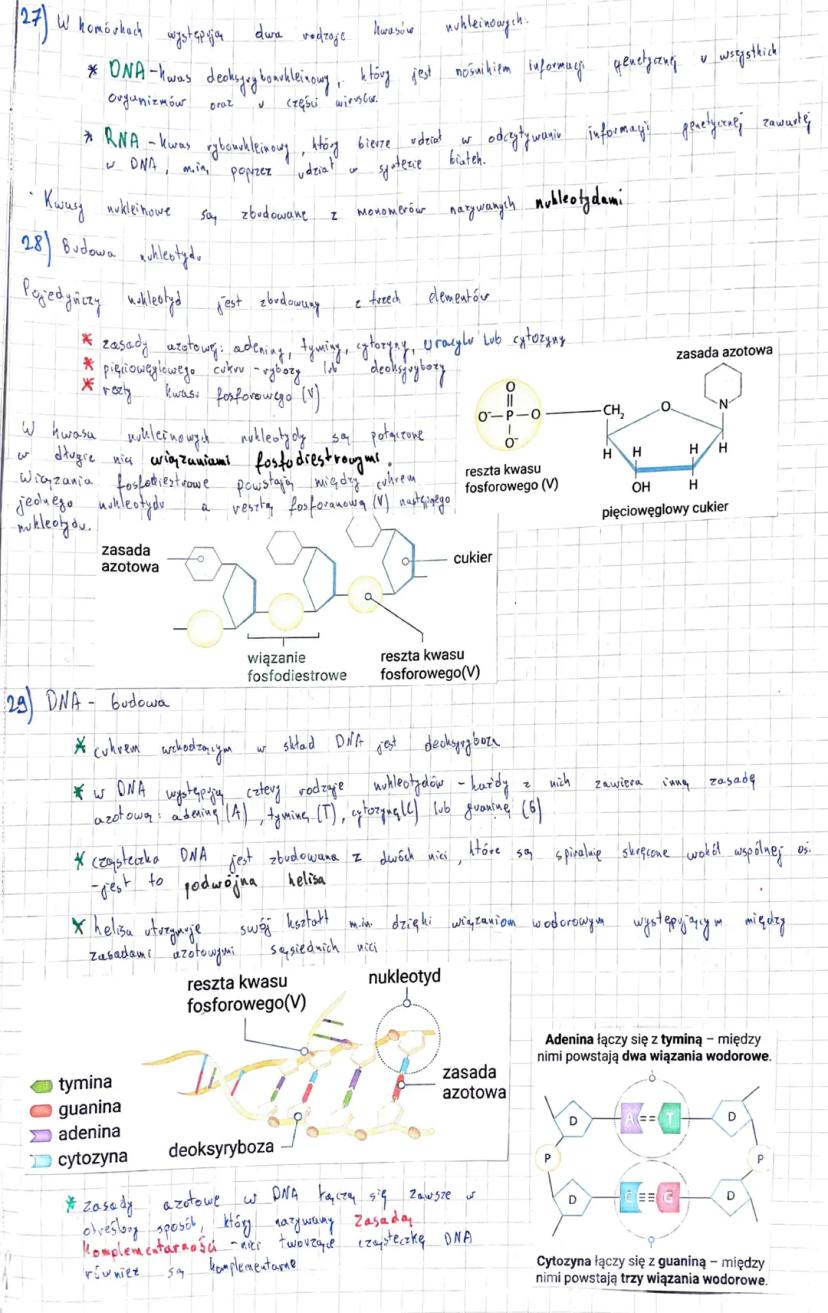 27) W komórkach występują dwa rodzaje kwasów nukleinowych.
* DNA - kwas deoksyrybonukleinowy, który jest nośnikiem informacji genetycznej u wszystkich
organizmów oraz u części wirusów.
* RNA - kwas rybonukleinowy, który bierze udział w odczytywaniu informacji genetycznej zawartej
w DNA, m.in. poprzez udział w syntezie białek.
· Kwasy nukleinowe są zbudowane z monomerów nazywanych nukleotydami
28) Budowa nukleotydu
Pojedyńczy nukleotyd jest zbudowany z trzech elementów
* zasady azotowej: adeniny, tyminy, cytozyny, uracylu lub cytozyny
* pięciowęglowego cukru - rybozy lub deoksyrybozy
* reszty kwasu fosforowego (V)
zasada azotowa
O
O⁻ P O
O⁻
CH₂
O
N
H H H H
OH H
reszta kwasu
fosforowego (V)
pięciowęglowy cukier
W kwasu nukleinowych nukleotydy są połączone
w długie nici wiązaniami fosfodiestrowymi.
Wiązania fosfodiestrowe powstają między cukrem
jednego nukleotydu a resztą fosforanową (V) następnego
nukleotydu.
zasada
azotowa
cukier
wiązanie
fosfodiestrowe
reszta kwasu
fosforowego(V)
29) DNA - budowa
* cukrem wchodzącym w skład DNA jest deoksyryboza
* w DNA występują cztery rodzaje nukleotydów - każdy z nich zawiera inną zasadę
azotową: adeninę (A), tyminę (T), cytozynę (C) lub guaninę (G)
* cząsteczka DNA jest zbudowana z dwóch nici, które są spiralnie skręcone wokół wspólnej osi
- jest to podwójna helisa
* helisa utrzymuje swój kształt m.in. dzięki wiązaniom wodorowym występującym między
zasadami azotowymi sąsiednich nici
reszta kwasu
fosforowego(V)
nukleotyd
tymina
guanina
adenina
cytozyna
deoksyryboza
zasada
azotowa
Adenina łączy się z tyminą – między
nimi powstają dwa wiązania wodorowe.
D A T D
P P
D C G D
Cytozyna łączy się z guaniną – między
nimi powstają trzy wiązania wodorowe.
* zasady azotowe w DNA łączą się zawsze w
określony sposób, który nazywamy Zasadą
Komplementarności - nici tworzące cząsteczkę DNA
również są komplementarne